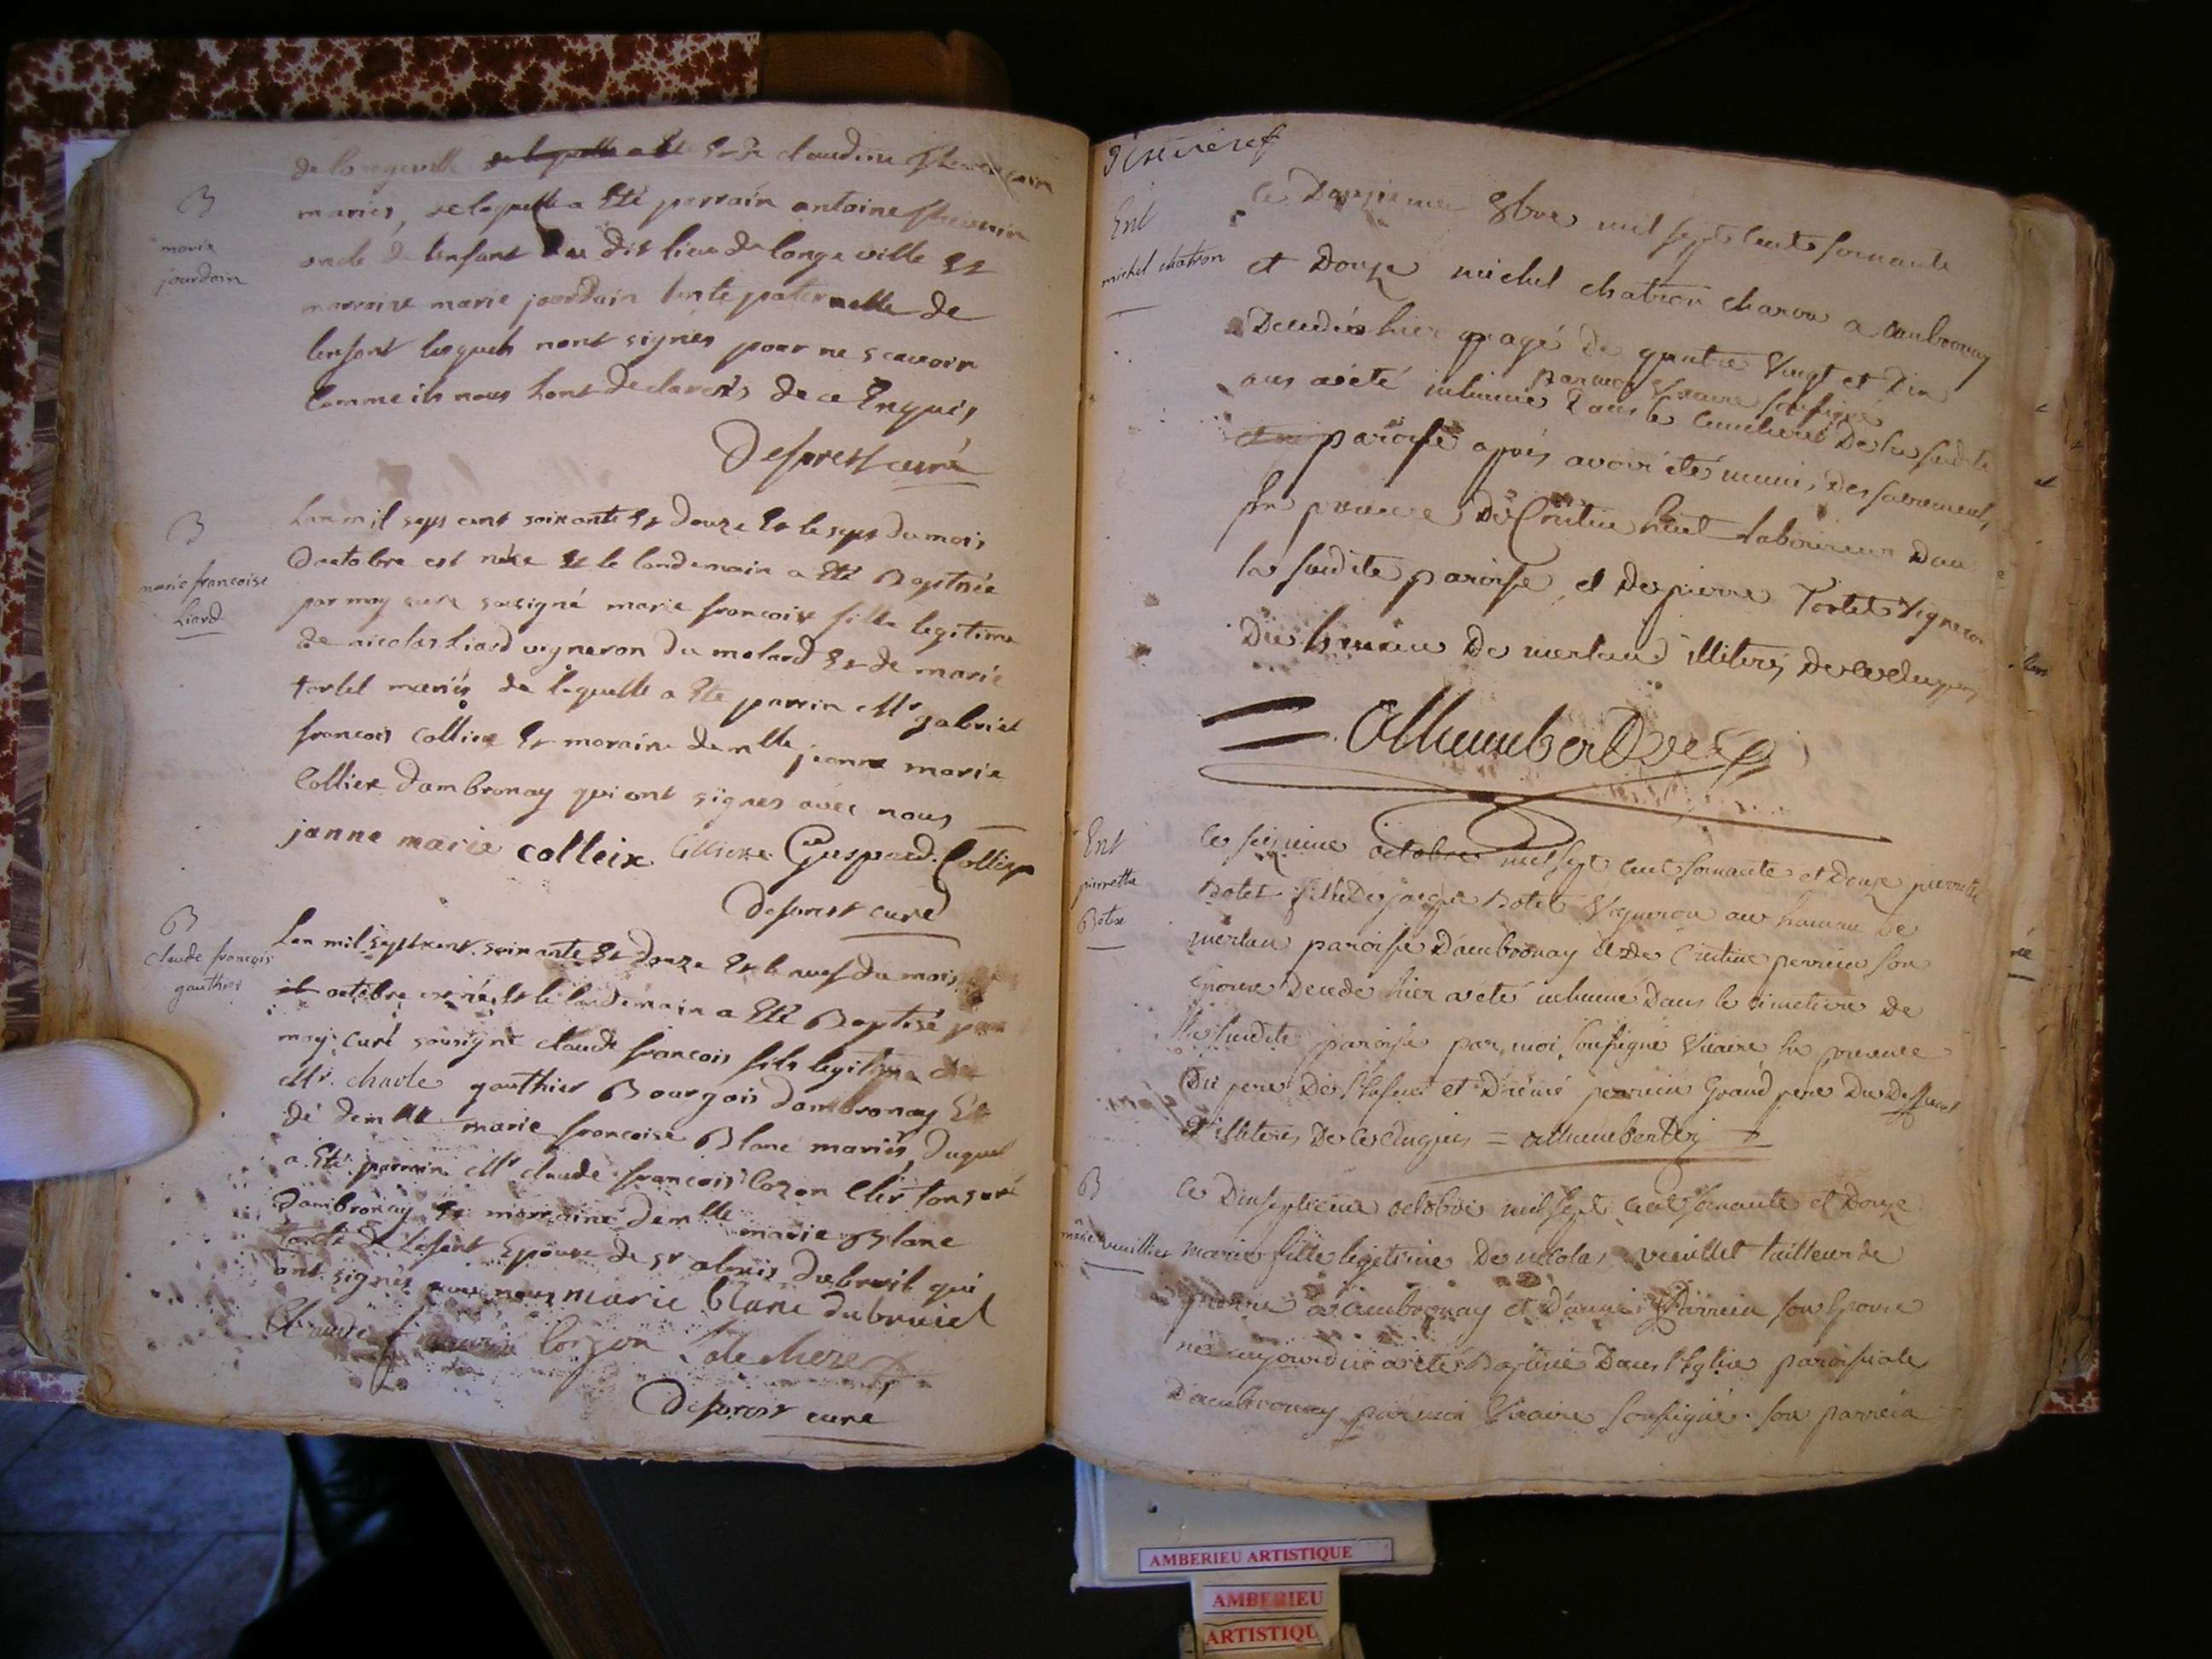 de longeville de laquelle a été et de claudine
B
marie
jourdain
mariés, de laquelle a Eté parrain antoine
oncle de lenfant du dit lieu de longeville Et
marraine marie jourdain tente paternelle de
lenfant lesquels nont signés pour ne scavoir
comme ils nous hont declarés de ce Enquis
Deforest curé
B
marie francoise
Liard
Lan mil sept cent soixante Et douze Et le sept du mois
doctobre est née Et le landemain a Eté Baptisée
par moy curé sousigné marie francoise fille legitime
de nicolas Liard vigneron du molard Et de marie
tortel mariés de laquelle a Eté parrin Mr gabriel
francois Colliex Et maraine demlle jeanne marie
Colliex dambronay qui ont signes avec nous
janne marie colleix Collieix Guspard Colliex
deforest curé
B
claude francois
gauthier
Lan mil sept cent soixante Et douze Et le neuf du mois
octobre est né Et le landemain a Eté Baptisé par
moy curé sousigné claude francois fils legitime de
Mr. charle gauthier Bourgois dambronay Et
de demlle marie francoise Blanc mariés, duquel
a Eté parrain Mr claude francois Cozon Cler tonsuré
dambronay, Et marraine demlle marie Blanc
tante de Lefent Epouse de Sr alexis dubreuil qui
ont signés avec nous marie blanc dubruiel
Claude corzon
deforest curé
Ent
michel chatron
ce Douzieme 8bre mil sept cent soixante
et Douze michel chatron charon a ambronay
Decedés hier agé de quatre Vingt et Dix
par moi Vicaire soussigné
ans a été inhumé Dans le cimetiere De la susdite
paroisse après avoir été muni, des sacrement,
en presence De huet laboureur Dans
la susdite paroisse, et De pierre Tortet Vigneron
Du hameau De merlan illiterés De ce enquis
Ent
pierrette
Botex
ce seizieme octobre mil sept cent soixante et Douze pierrette
Botet fille De jacque Botet Vigneron au hameau De
merlan paroisse D'ambronay et De perrin son
Epouse Decede hier a été inhumé Dans le cimetiere De
la susdite paroisse par moi soussigné Vicaire la presence
Du pere De l'Enfent et perrin Grand pere Du Deffunt
illiterés De ce enquis =
B
marie vueillier
ce Dixseptieme octobre mil sept cent soixante et Douze
marie fille legetime De nicolas vueillet tailleur de
a ambronay et D'anne Parrin son Epouse
né aujourdui a été Baptisé Dans l'Eglise paroissiale
D'ambronay par moi Vicaire soussigné. son parrein
AMBERIEU ARTISTIQUE
AMBERIEU
ARTISTIQU